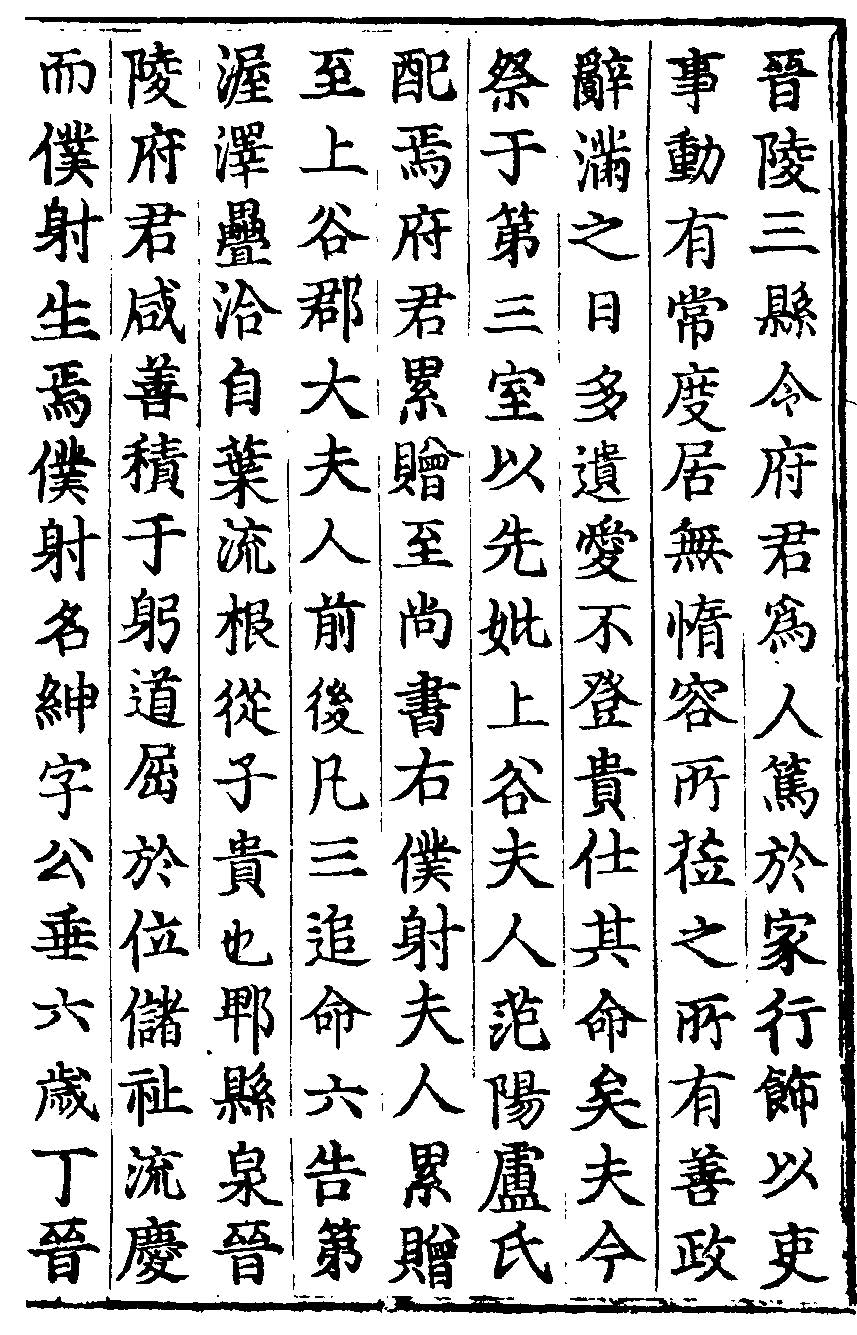 晉陵三縣令府君爲人篤於家行飾以吏
事動有常度居無惰容所蒞之所有善政
辭滿之日多遺愛不登貴仕其命矣夫今
祭于第三室以先妣上谷夫人范陽盧氏
配焉府君累贈至尚書右僕射夫人累贈
至上谷郡大夫人前後凡三追命六告第
渥澤疊洽自葉流根從子貴也鄲縣泉晉
陵府君咸善積于躬道屈於位儲祉流慶
而僕射生焉僕射名紳字公垂六歲丁晉